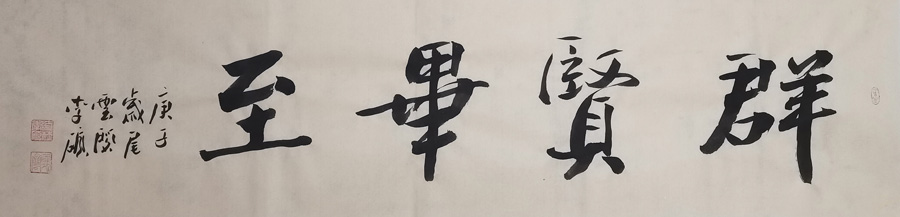 群賢畢至
庚子
歲尾
雲閒
李碩